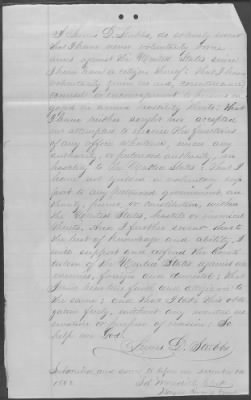 I James D. Stubbs, do solemnly swear
that I have never voluntarily borne
arms against the United States since
I have been a citizen thereof; that I have
voluntarily given no aid, countenance,
counsel or encouragement to persons en-
gaged in armed hostility thereto; that
I have neither sought nor accepted
nor attempted to exercise the functions
of any office whatever, under any
authority, or pretended authority, in
hostility to the United States; that I
have not yielded a voluntary sup-
port to any pretended government, au-
thority, power, or constitution, within
the United States, hostile or inimical
thereto. And I further swear that to
the best of knowledge and ability, I
will support and defend the Consti-
tution of the United States against all
enemies, foreign and domestic; that
I will bear true faith and allegiance to
the same; and that I take this obli-
gation freely, without any mental res-
ervation or purpose of evasion; So
help me God.
James D. Stubbs
Subscribed and sworn to before me
186